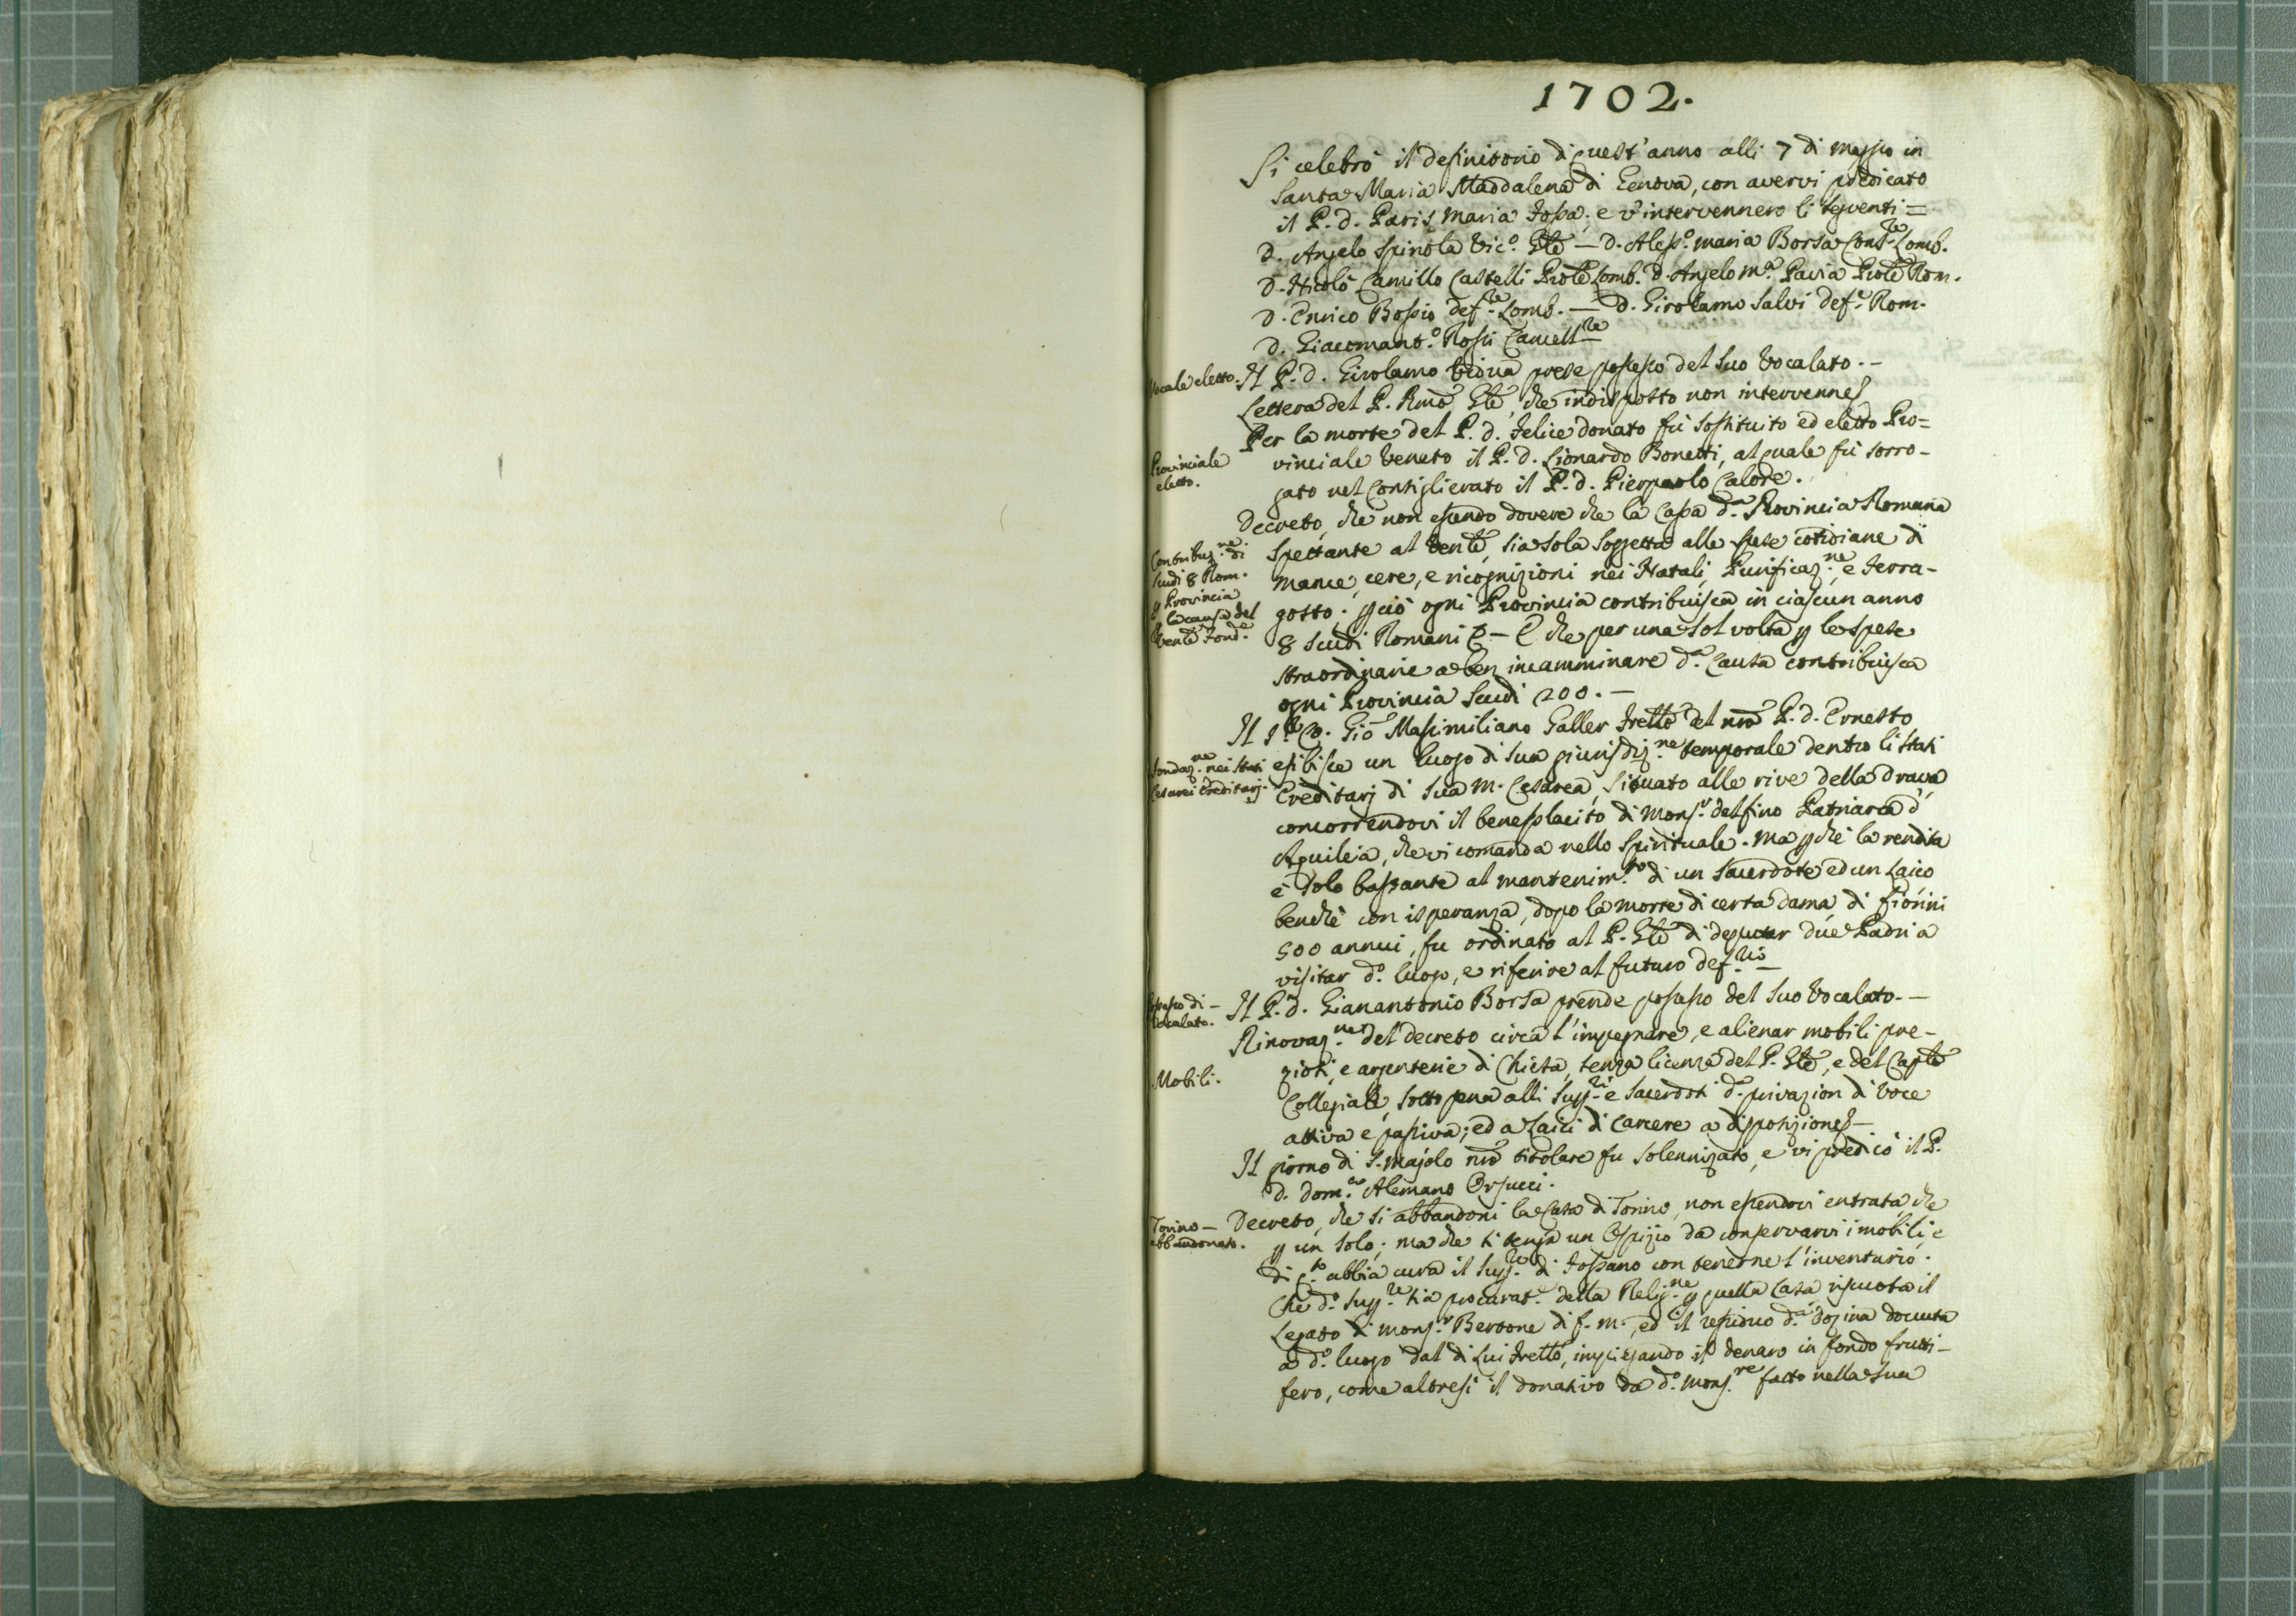 1702.
Si celebrò il definitorio di quest'anno alli 7 di maggio in
Santa Maria Maddalena di Genova, con avervi predicato
il P. d. Paris Maria Fossa; e v'intervennero li seguenti =
D. Angelo Spinola Vic.º Gle — D. Aless.º maria Borsa Cons.re Lomb.
D. Nicolò Camillo Castelli Prôle Lomb. D. Angelo M.ª Pavia Prôle Rom.
D. Enrico Bossio def.re Lomb. — D. Girolamo Salvi def.e Rom.
D. Giacomant.º Rossi Cancell.re
Vocale eletto. Il P. d. Girolamo Vidua prese possesso del suo Vocalato. —
Lettera del P. Rmo Gle, che indisposto non intervenne
Per la morte del P. d. Felice donato fu sostituito ed eletto Pro=
Provinciale
eletto.
vinciale Veneto il P. d. Lionardo Bonetti, al quale fu sorro-
gato nel Consiglierato il P. d. Pierpaolo Calore.
Decreto, che non essendo dovere che la Casa d.ª Provincia Romana
Contribuz.ne di
scudi 8 Rom.
p Provincia
p la causa del
Venle Fond.e
spettante al Venle, sia sola soggetta alle spese cotidiane di
mance, cere, e ricognizioni nei Natali, Purificaz.ne, e Ferra-
gosto; p ciò ogni Provincia contribuisca in ciascun anno
8 scudi Romani — E che per una sol volta p le spese
straordinarie a ben incamminare d.ª Causa contribuisca
ogni Provincia scudi 200. —
Il Gio Massimiliano Galler Frello del nro P. d. Ernesto
fondaz.ne nei stati
Cesarei Ereditarj.
esibisce un luogo di sua giurisdiz.ne temporale dentro li stati
Ereditarj di sua M. Cesarea, situato alle rive della Drava
concorrendovi il beneplacito di Mons.r Delfino Patriarca d'
Aquileia, che vi comanda nello spirituale. Ma pchè la rendita
è solo bastante al mantenim.to di un Sacerdote ed un Laico
benchè con isperanza, dopo la morte di certa dama, di fiorini
500 annui, fu ordinato al P. Gle di deputar due Padri a
visitar d.º luogo, e riferire al futuro def.rio —
Possesso di —
Vocalato.
Il P. d. Gianantonio Borsa prende possesso del suo Vocalato. —
Rinovaz.ne del decreto circa l'impegnare, e alienar mobili pre-
Mobili.
ziosi, e argenterie di Chiesa, senza licenza del P. Gle, e del Caplo
Collegiale, sotto pena alli Supp.ri e Sacerdoti d.ª privazion di voce
attiva e passiva; ed a Laici di Carcere a disposizione —
Il giorno di S. Majolo nro titolare fu solennizato, e vi predicò il P.
d. Dom.co Alemano Orsucci.
Torino —
abbandonato.
Decreto, che si abbandoni la Casa di Torino, non essendovi entrata che
p un solo; ma che si tenga un Ospizio da conservarvi i mobili e
di q.to abbia cura il Supp.re di Fossano con tenerne l'inventario.
Che d.º Supp.re sia procurat.e della Relig.ne p quella Casa riscuota il
Legato di Mons.r Bertone di f. m., ed il residuo d.ª dozina dovuta
a d.º luogo dal di Lui Frello, impiegando il denaro in fondo frutti-
fero, come altresì il donativo da d.º Mons.re fatto nella sua